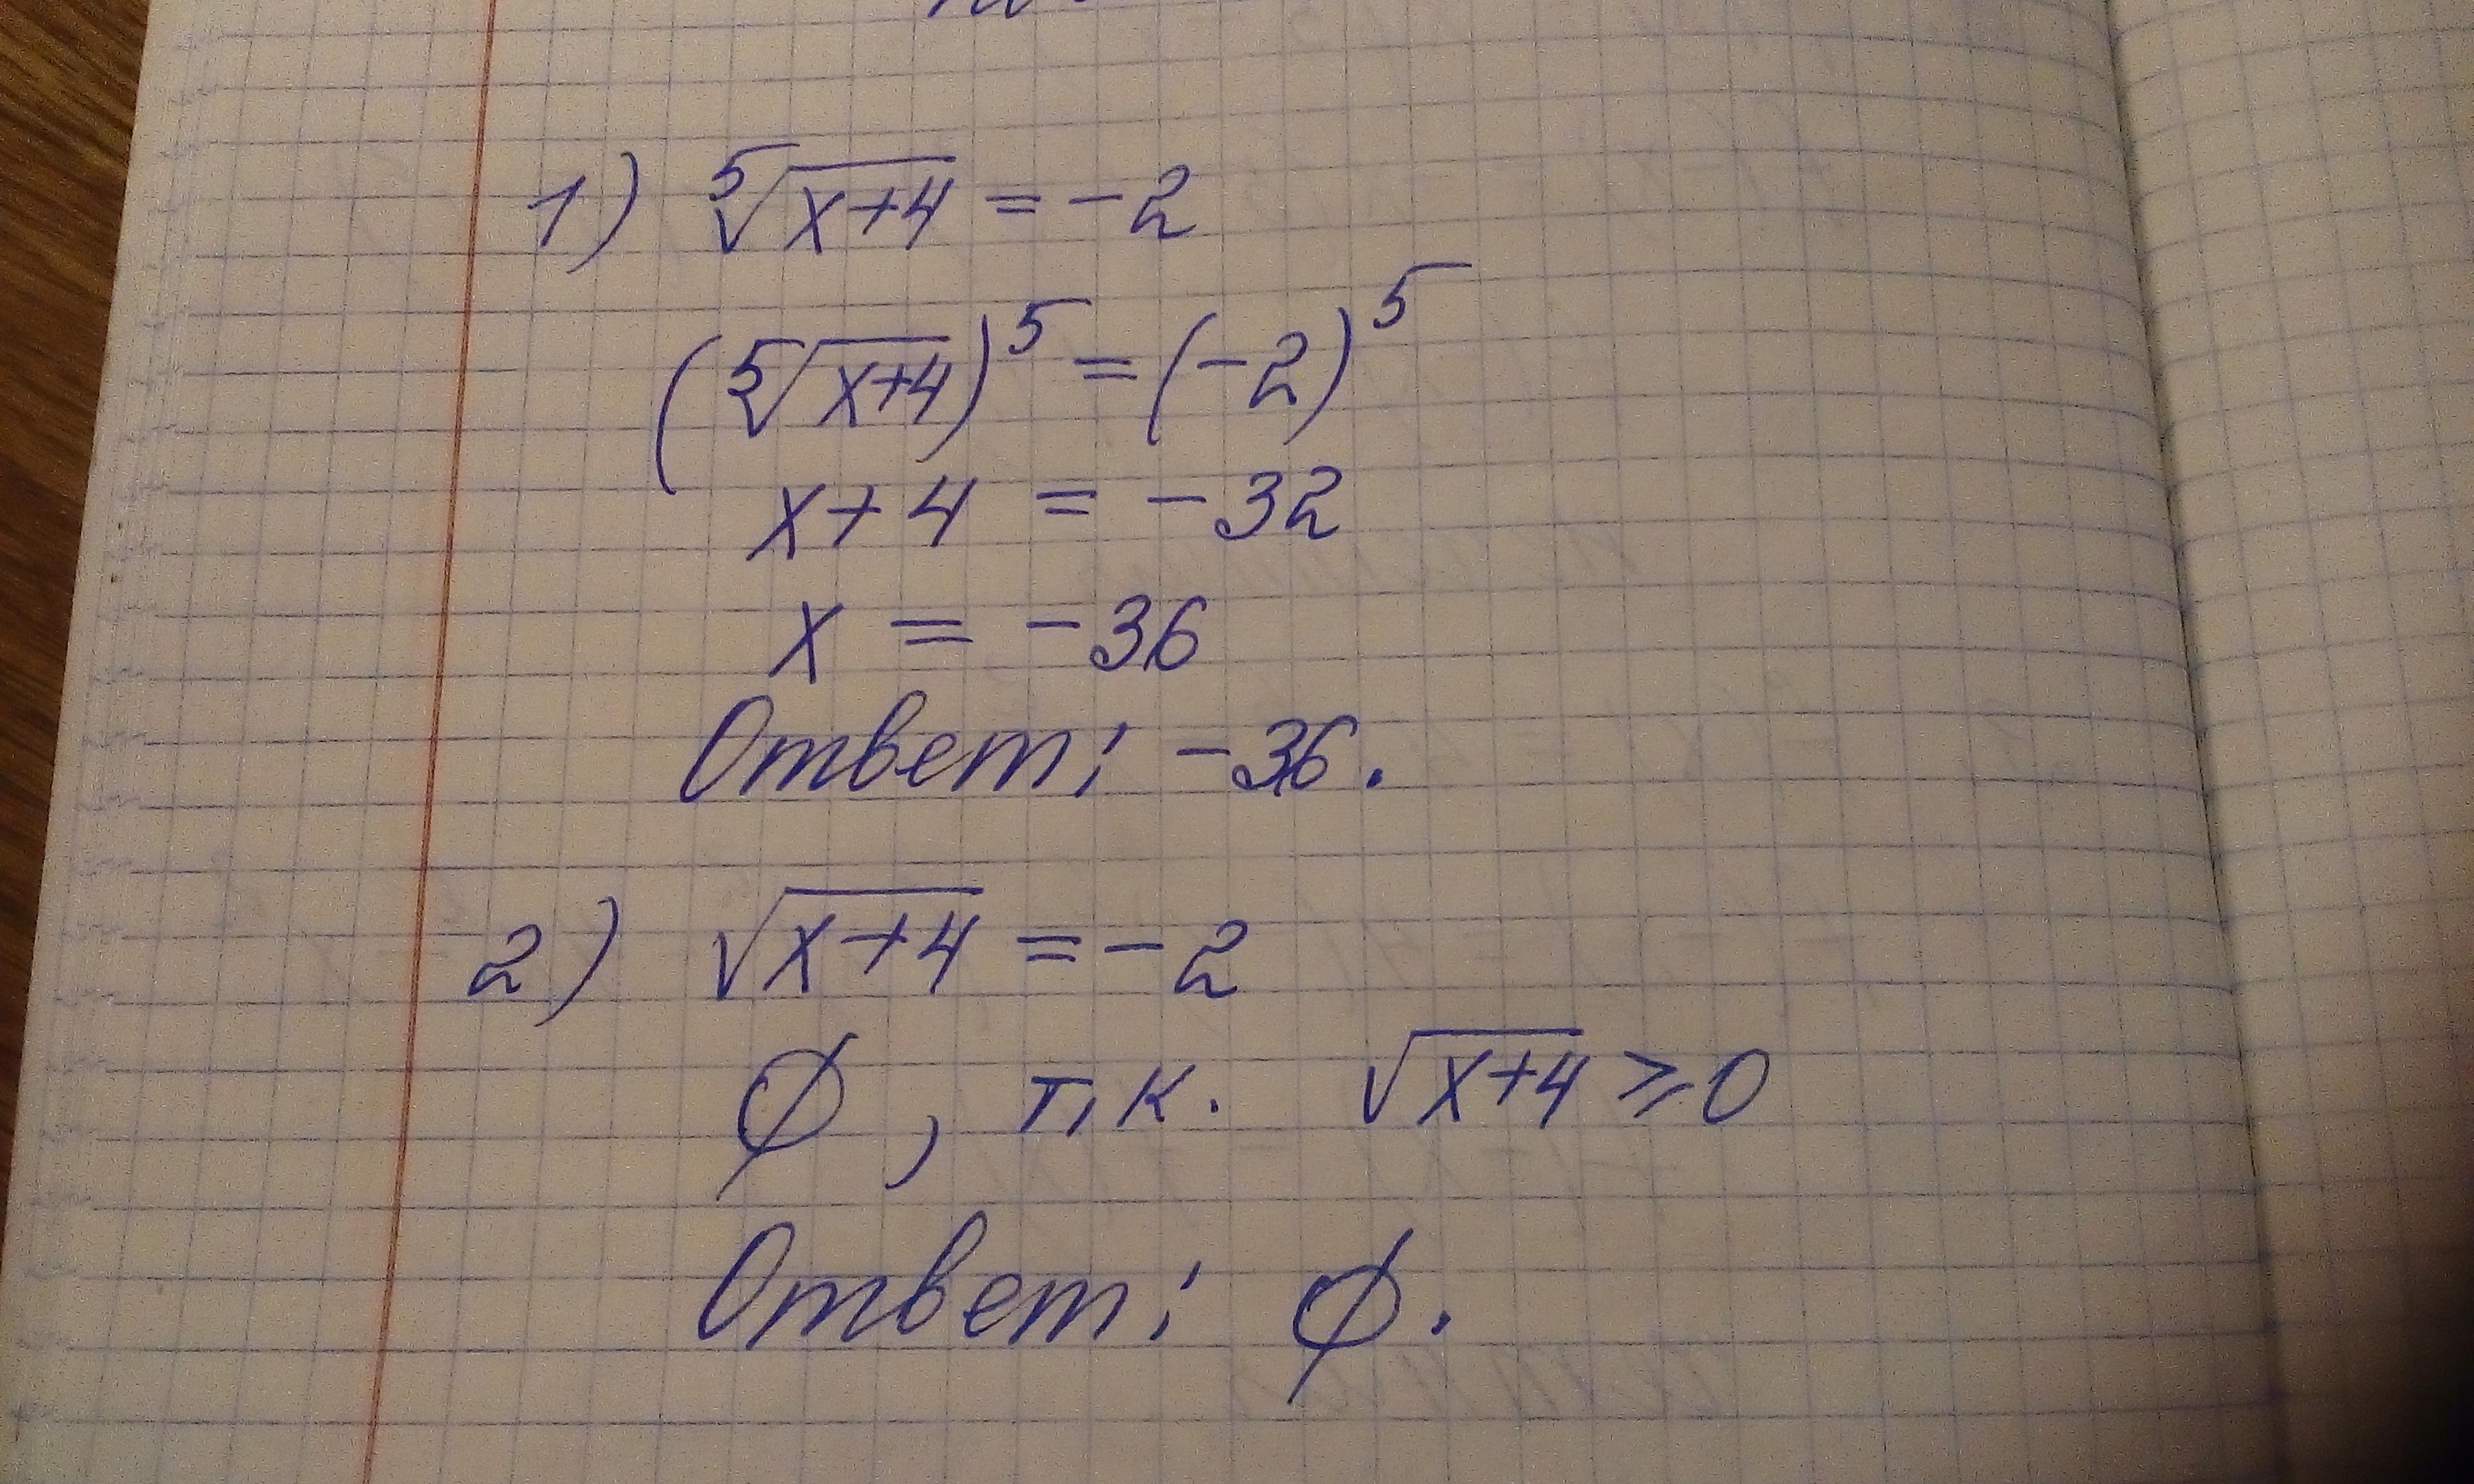 1) ⁵√(x+4) = -2
(⁵√(x+4))⁵ = (-2)⁵
x+4 = -32
x = -36
Ответ: -36.
2) √(x+4) = -2
∅, т.к. √(x+4) ⩾ 0
Ответ: ∅.